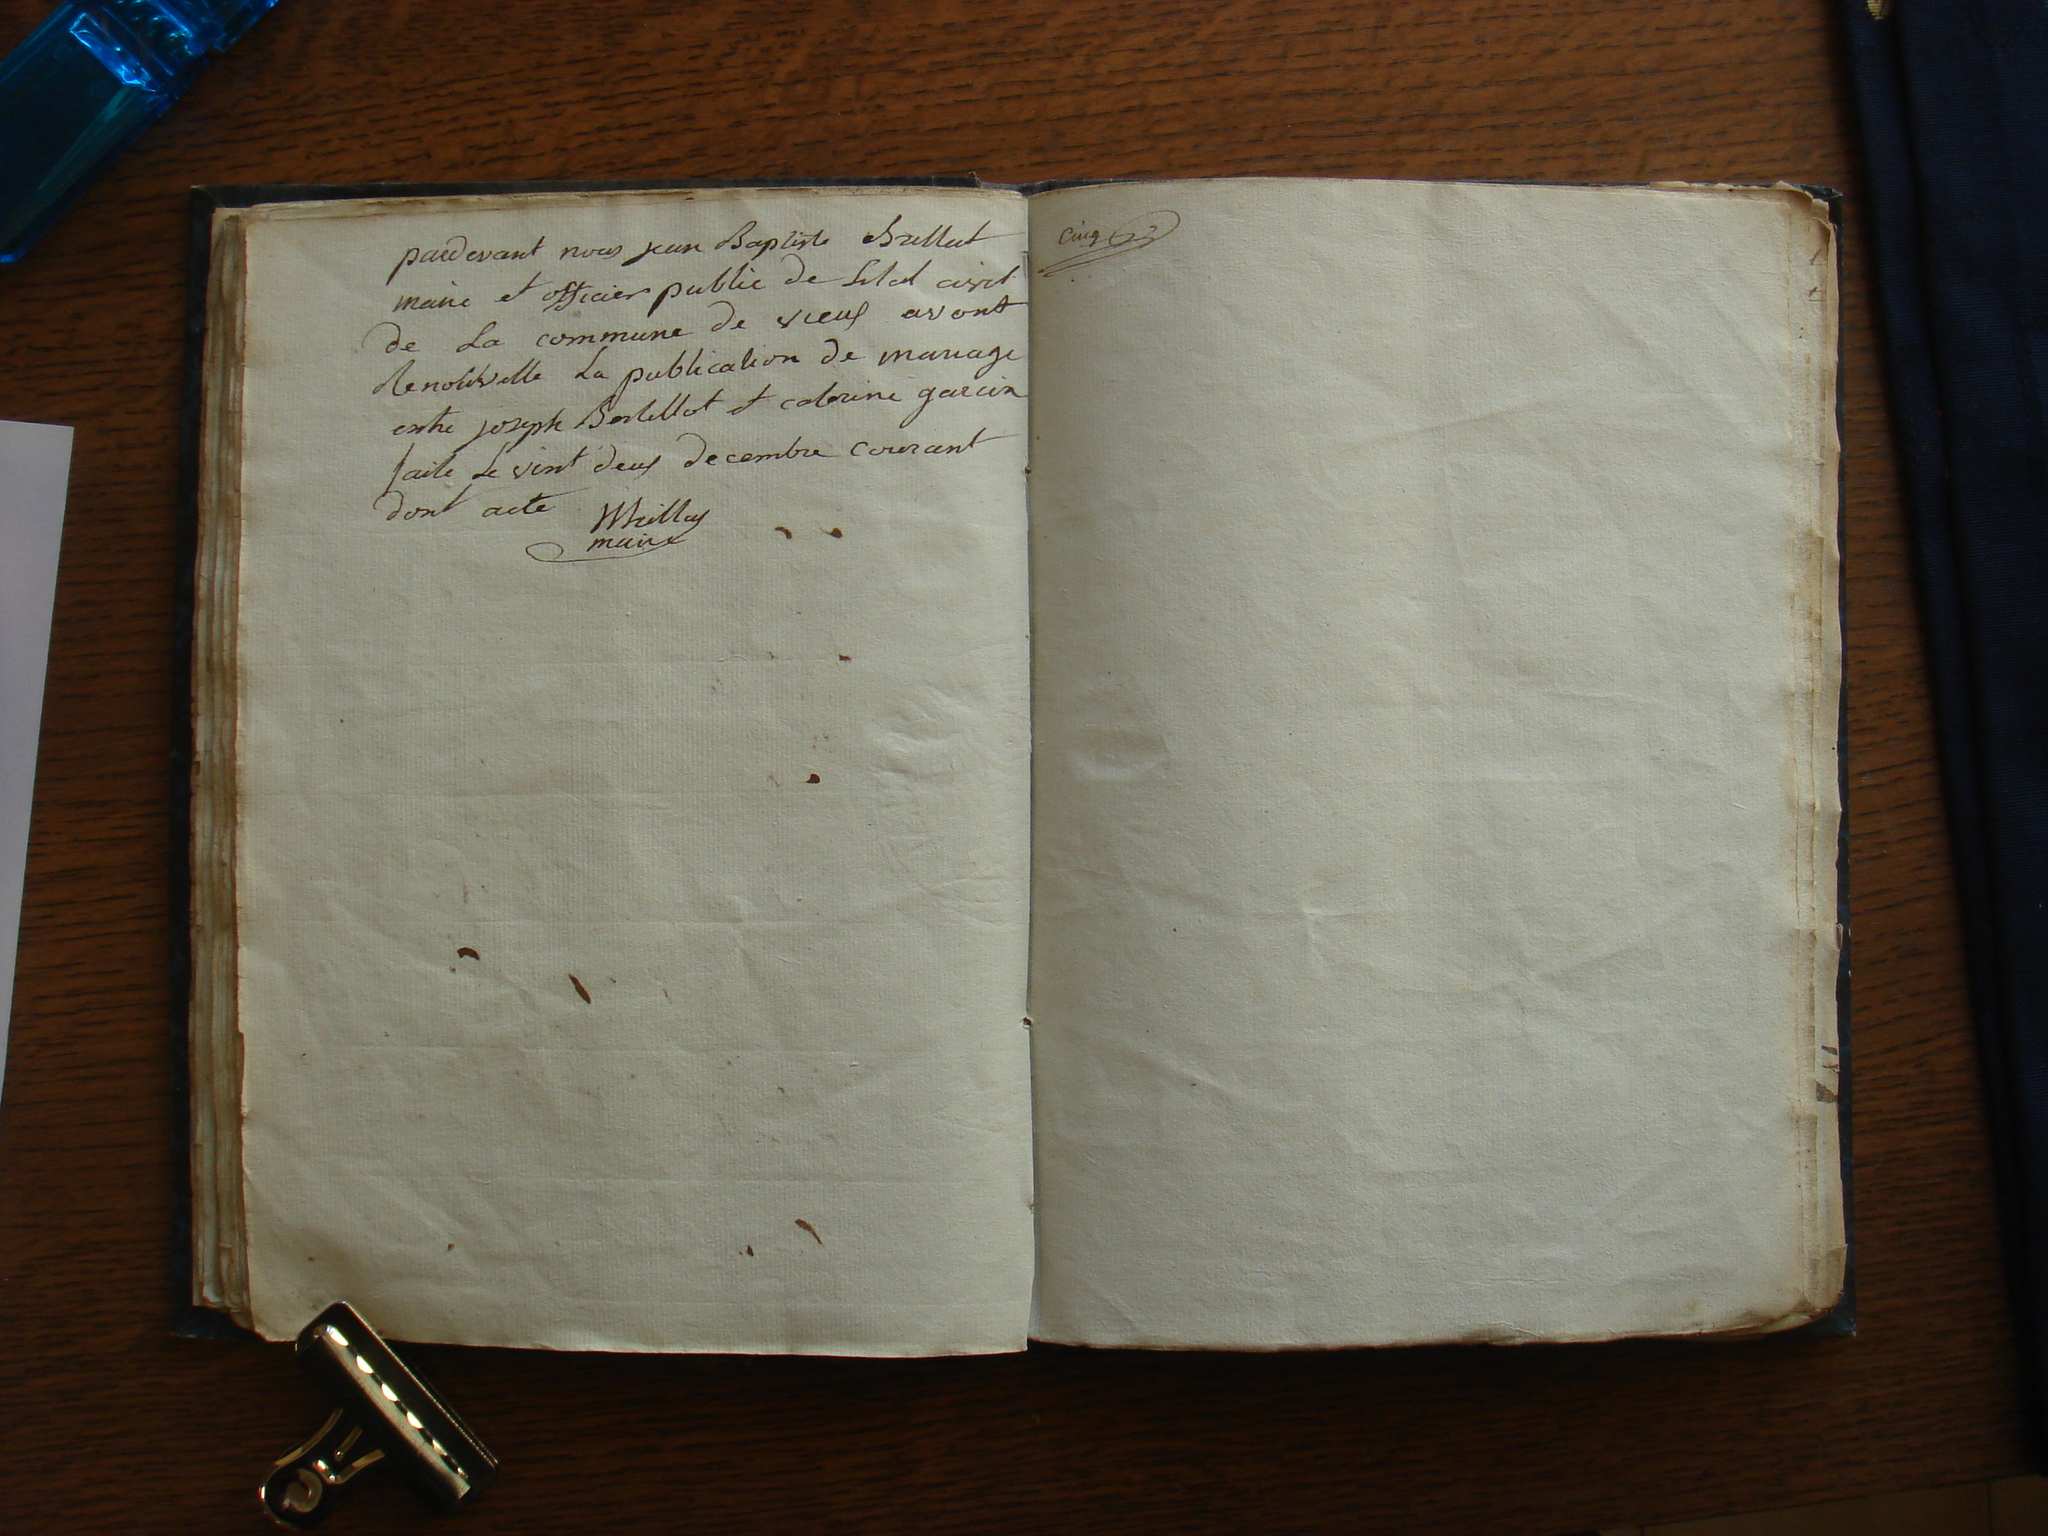 pardevant nous jean Baptiste
maire et officier public de Letat civil
de La commune de vieux avont
Renouvelle La publication de mariage
entre joseph Berlillot et caterine garcin
faite Le vint deux decembre courant
dont acte
maire
cinq